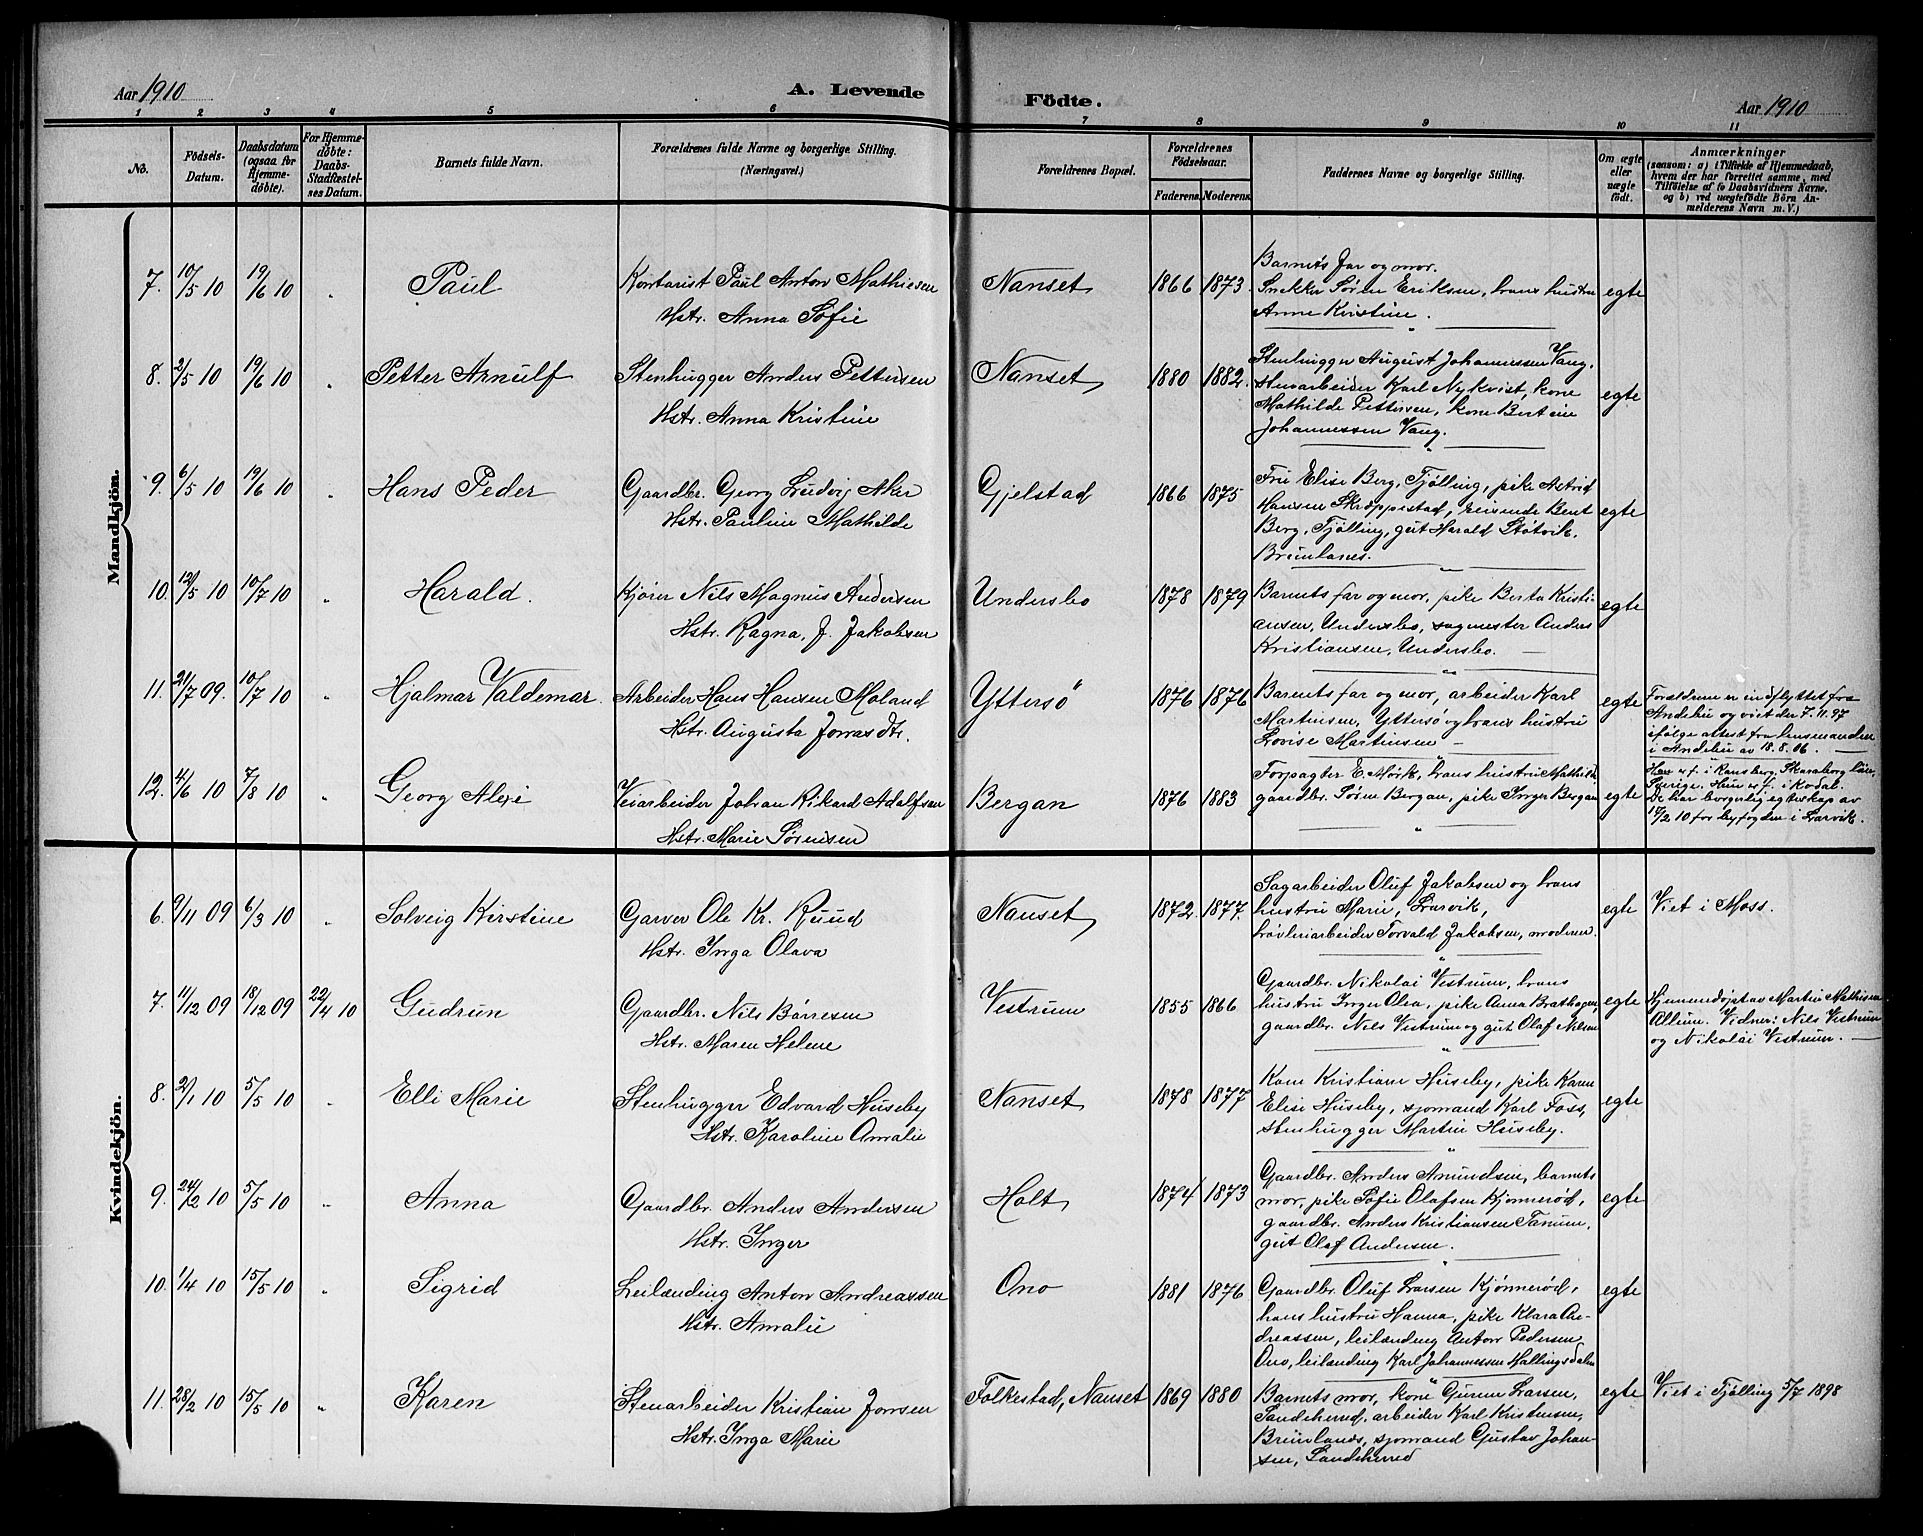 Aar 1910
A. Levende
Födte.
Aar 1910
1 2 3 4 5 6 7 8 9 10 11
No.
Födsels-
Datum.
Daabsdatum
(ogsaa for
Hjemme-
döbte).
For Hjemme-
döbte:
Daabs-
Stadfæstel-
ses Datum.
Barnets fulde Navn.
Forældrenes fulde Navne og borgerlige Stilling.
(Næringsvei.)
Forældrenes Bopæl.
Forældrenes
Födselsaar.
Faderens. Moderens.
Faddernes Navne og borgerlige Stilling.
Om ægte
eller
uægte
födt.
Anmærkninger
(saasom: a) i Tilfælde af Hjemmedaab,
hvem der har forrettet samme, med
Tilföielse af to Daabsvidners Navne.
og b) ved uægtefödte Börn An-
melderens Navn m. V.)
Mandkjön.
7. 10/5 10 19/6 10 " Paul
Kontorist Paul Anton Mathiesen
Hstr. Anna Sofie
Nanset 1866 1873.
Barnets far og mor.
Snekker Søren Eriksen, hans hustru
Anne Kirstine.
egte
8. 2/5 10 19/6 10 " Petter Arnulf
Stenhugger Anders Pettersen
Hstr. Anna Kristine
Nanset 1880 1882.
Stenhugger August Johannessen Vang,
stenarbeider Karl Nykvist, kone
Mathilde Pettersen, kone Bertine
Johannessen Vang.
egte
9. 6/5 10 19/6 10 " Hans Peder
Gaardbr. Georg Ludvig Aker
Hstr. Pauline Mathilde
Gjelstad 1866 1875
Fru Elise Berg, Tjølling, pike Astrid
Hansen Skrøppestad, reisende Bent
Berg, Tjølling, gut Harald Støtvik,
Brunlanes.
egte
10. 12/5 10 10/7 10 " Harald.
Kjører Nils Magnus Andersen
Hstr. Ragna, J. Jakobsen
Undersbo 1878 1879
Barnets far og mor, pike Berta Kristi-
ansen, Undersbo, sagmester Anders
Kristiansen, Undersbo.
egte
11. 21/7 09. 10/7 10 " Hjalmar Valdemar.
Arbeider Hans Hansen Moland
Hstr. Augusta Jonasdtr.
Yttersö 1876 1876
Barnets far og mor, arbeider Karl
Martinsen, Yttersø og hans hustru
Lovise Martinsen
egte
Forældrene er indflyttet fra
Andebu og viet der 7.11.97
ifølge attest fra lensmanden
i Andebu av 18.8.06.
12. 4/6 10 7/8 10 " Georg Alexi
Veiarbeider Johan Rikard Adolfsen
Hstr. Marie Sørensen
Bergan 1876 1883
Forpagter E. Mørk, hans hustru Mathilde
gaardbr. Søren Bergan, pike Inger Bergan
egte
Han er f. i Ransberg, Skaraborg län,
Sverige. Hun er f. i Kodal.
De har borgerlig egteskap av
17/2 10 for byfogden i Larvik.
Kvindekjön.
6. 9/11 09 6/3 10 " Solveig Kirstine
Garver Ole Kr. Ruud
Hstr. Inga Olava
Nanset 1872. 1877.
Sagarbeider Oluf Jakobsen og hans
hustru Marie, Larvik,
høvleriarbeider Torvald Jakobsen, moderen.
egte
Viet i Moss.
7. 11/12 09 18/12 09 22/4 10 Gudrun
Gaardbr. Nils Børresen
Hstr. Maren Helene
Vestrum 1855 1866
Gaardbr. Nikolai Vestrum, hans
hustru Inger Olea, pike Anna Brathagen,
gaardbr. Nils Vestrum og gut Olaf Nilsen
egte
Hjemmedøpt av Martin Mathisen
Allum. Vidner: Nils Vestrum
og Nikolai Vestrum.
8. 2/1 10 5/5 10 " Elli Marie
Stenhugger Edvard Huseby
Hstr. Karoline Amalie
Nanset 1878 1877
Kone Kristiane Huseby, pike Karen
Elise Huseby, sjømand Karl Foss,
stenhugger Martin Huseby.
egte
9. 24/2 10 5/5 10 " Anna
Gaardbr. Anders Andersen
Hstr. Inger
Holt 1874 1873
Gaardbr. Anders Amundsen, barnets
mor, pike Sofie Olafsen Kjønnerød,
gaardbr. Anders Kristiansen Tanum,
gut Olaf Andersen.
egte
10. 1/4 10 15/5 10 " Sigrid
Leilænding Anton Andreassen
Hstr. Amalie
Ono 1881 1876
Gaardbr. Oluf Larsen Kjønnerød,
hans hustru Hanna, pike Klara An-
dreassen, leilænding Anton Pedersen
Ono, leilænding Karl Johannessen Hallingsdalen
egte
11. 28/2 10 15/5 10 " Karen
Stenarbeider Kristian Jonsen
Hstr. Inga Marie
Folkestad, Nanset 1869 1880
Barnets mor, kone Gurine Larsen,
Sandeherred, arbeider Karl Kristensen,
Brunlanes, sjømand Gustav Johan-
sen, Sandeherred
egte
Viet i Tjølling 5/7 1898